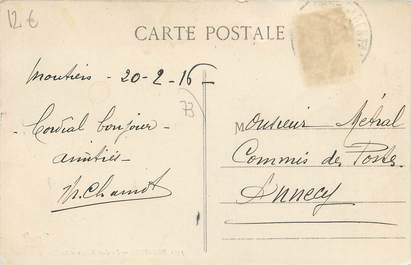 12 €
CARTE POSTALE
Moutiers - 20-2-16
73
- Cordial bonjour -
amitiés -
Monsieur Métral
Commis des Postes
Annecy